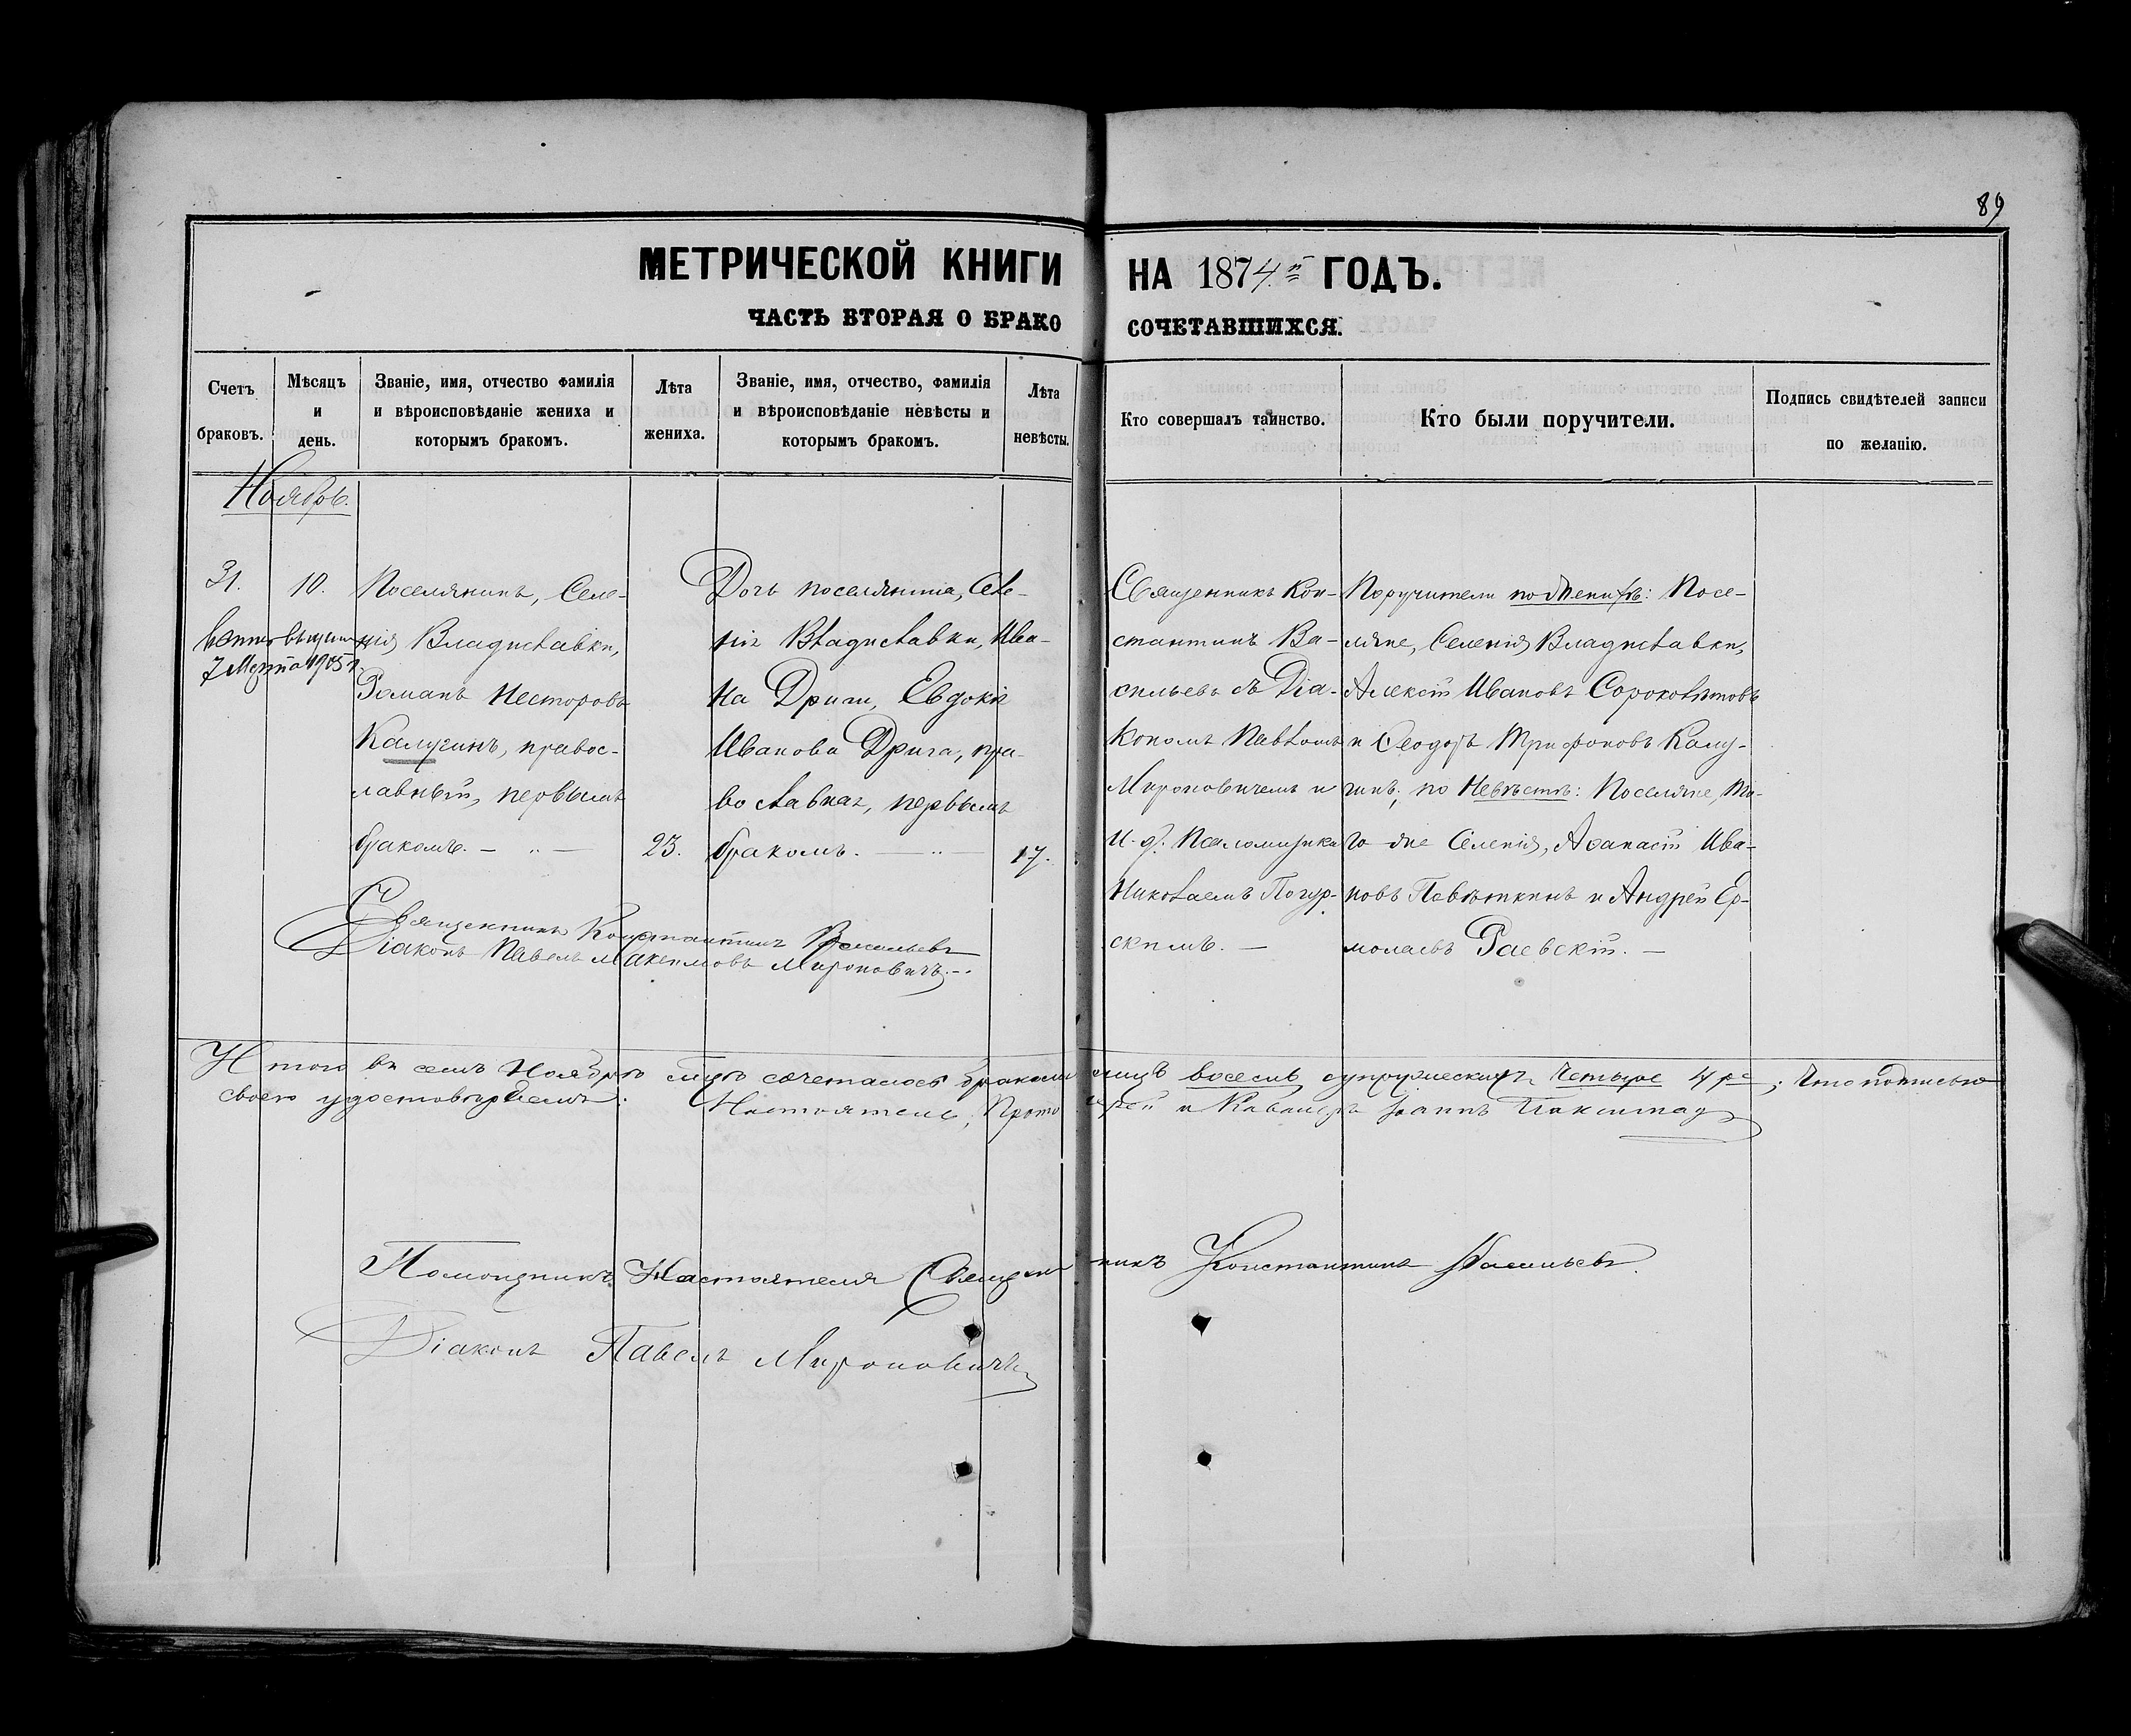 89
МЕТРИЧЕСКОЙ КНИГИ НА 1874й ГОДЪ.
ЧАСТЬ ВТОРАЯ О БРАКОСОЧЕТАВШИХСЯ.
Счетъ браковъ.
Мѣсяцъ и день.
Званіе, имя, отчество фамилія и вѣроисповѣданіе жениха и которымъ бракомъ.
Лѣта жениха.
Званіе, имя, отчество, фамилія и вѣроисповѣданіе невѣсты и которымъ бракомъ.
Лѣта невѣсты.
Кто совершалъ таинство.
Кто были поручители.
Подпись свидѣтелей записи по желанію.
Ноябрь.
31.
10.
7 Марта 1905 г.
Поселянинъ, Селе-
нія Владиславки,
Романъ Несторовъ
Калугинъ, правос-
лавный, первымъ
бракомъ. —
23.
Дочь поселянина, Селе-
нія Владиславки, Ива-
на Дриги, Евдокія
Иванова Дрига, пра-
вославная, первымъ
бракомъ. —
17.
Священникъ Кон-
стантинъ Ва-
сильевъ съ Діа-
кономъ Павломъ
Мироновичемъ и
и. д. Псаломщика
Николаемъ Погор-
скимъ. —
Поручители по Женихѣ: Посе-
ляне, Селенія Владиславки,
Алексій Ивановъ Сороколѣтовъ
и Ѳеодоръ Трифоновъ Калу-
гинъ; по Невѣстѣ: Поселяне, то-
го же Селенія, Аѳанасій Ива-
новъ Павѣткинъ и Андрей Ер-
молаевъ Раевскій. —
Священникъ Константинъ Васильевъ
Діаконъ Павелъ Максимовъ Мироновичъ. —
Итого въ семъ Ноябрѣ мцѣ сочеталось бракомъ лицъ восемь супружескихъ четыре 4 ре; Что подписью
своею удостовѣряемъ: Настоятель, Протоіерей и Кавалеръ Іоаннъ
Помощникъ Настоятеля Священникъ Константинъ Васильевъ.
Діаконъ Павелъ Мироновичъ